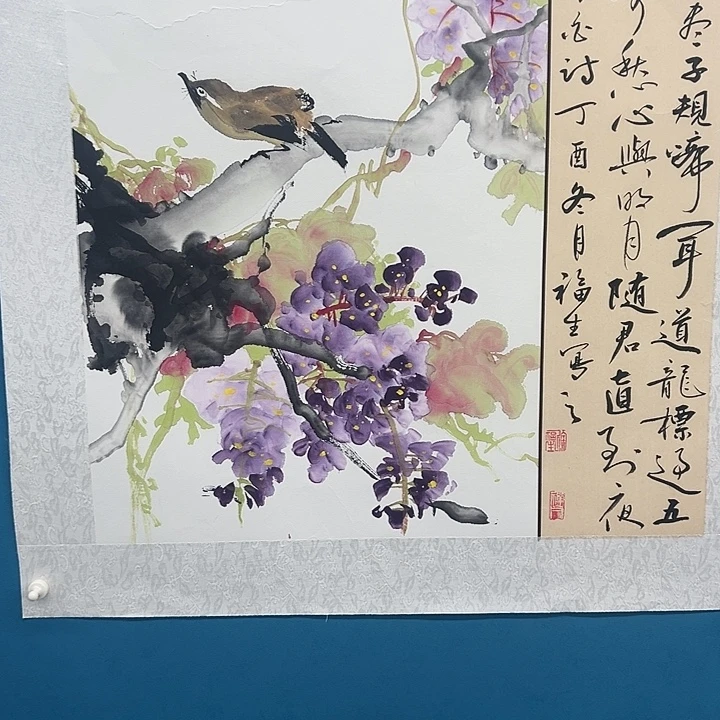 尽子規啼聞道龍標過五
愁心與明月隨君直到夜
白詩丁酉冬月福生寫之